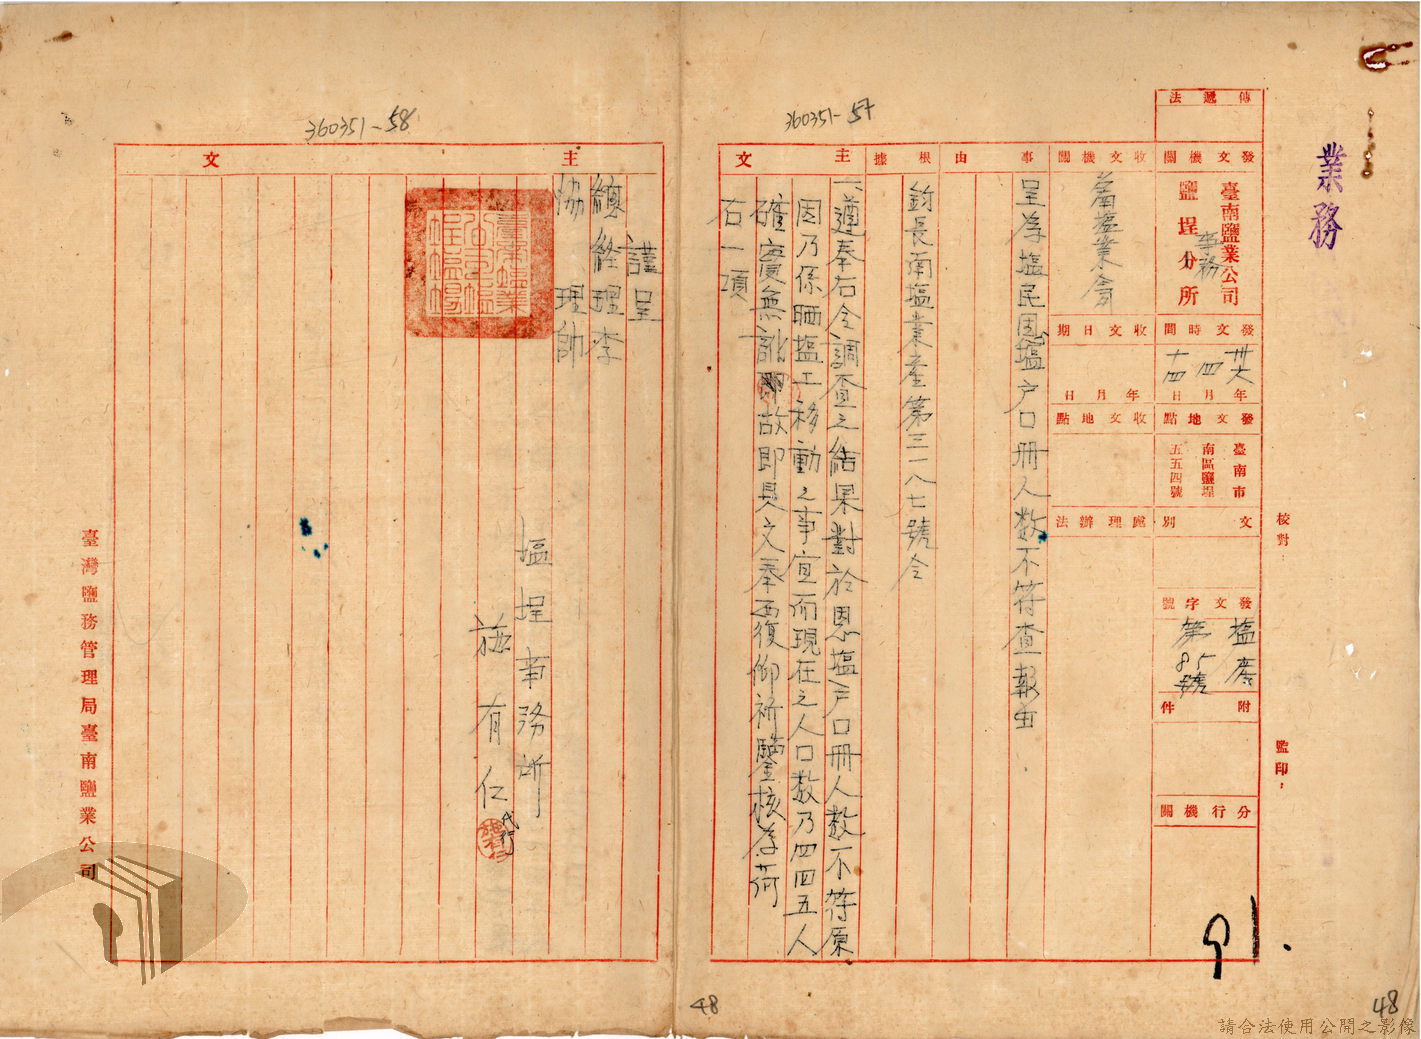 業務
校對
監印，
傳遞法
發文機關
臺南鹽業公司
鹽埕分所
事務
發文時間
卅六年四月十四日
發文地點
臺南市
南區鹽埕
五五四號
文別
發文字號
塩產
第85號
附件
分行機關
收文機關
南塩業公司
收文日期
年月日
收文地點
處理辦法
事由
呈為塩民恩塩户口冊人数不符查報由
根據
鈞長南塩業產第三一八七號令
主文
一、遵奉右令調查之結果對於恩塩户口冊人数不符原
因乃係晒塩工移動之事宜而現在之人口数乃四四五人
確實無訛即故即具文奉西復仰祈鑒核為荷
右一項
360351-57
主文
謹呈
總經理李
協理帥
塩埕事務所
施有仁
代行
臺南鹽業
公司鹽
埕鹽場
360351-58
臺灣鹽務管理局臺南鹽業公司
91.
48
48
請合法使用公開之影像